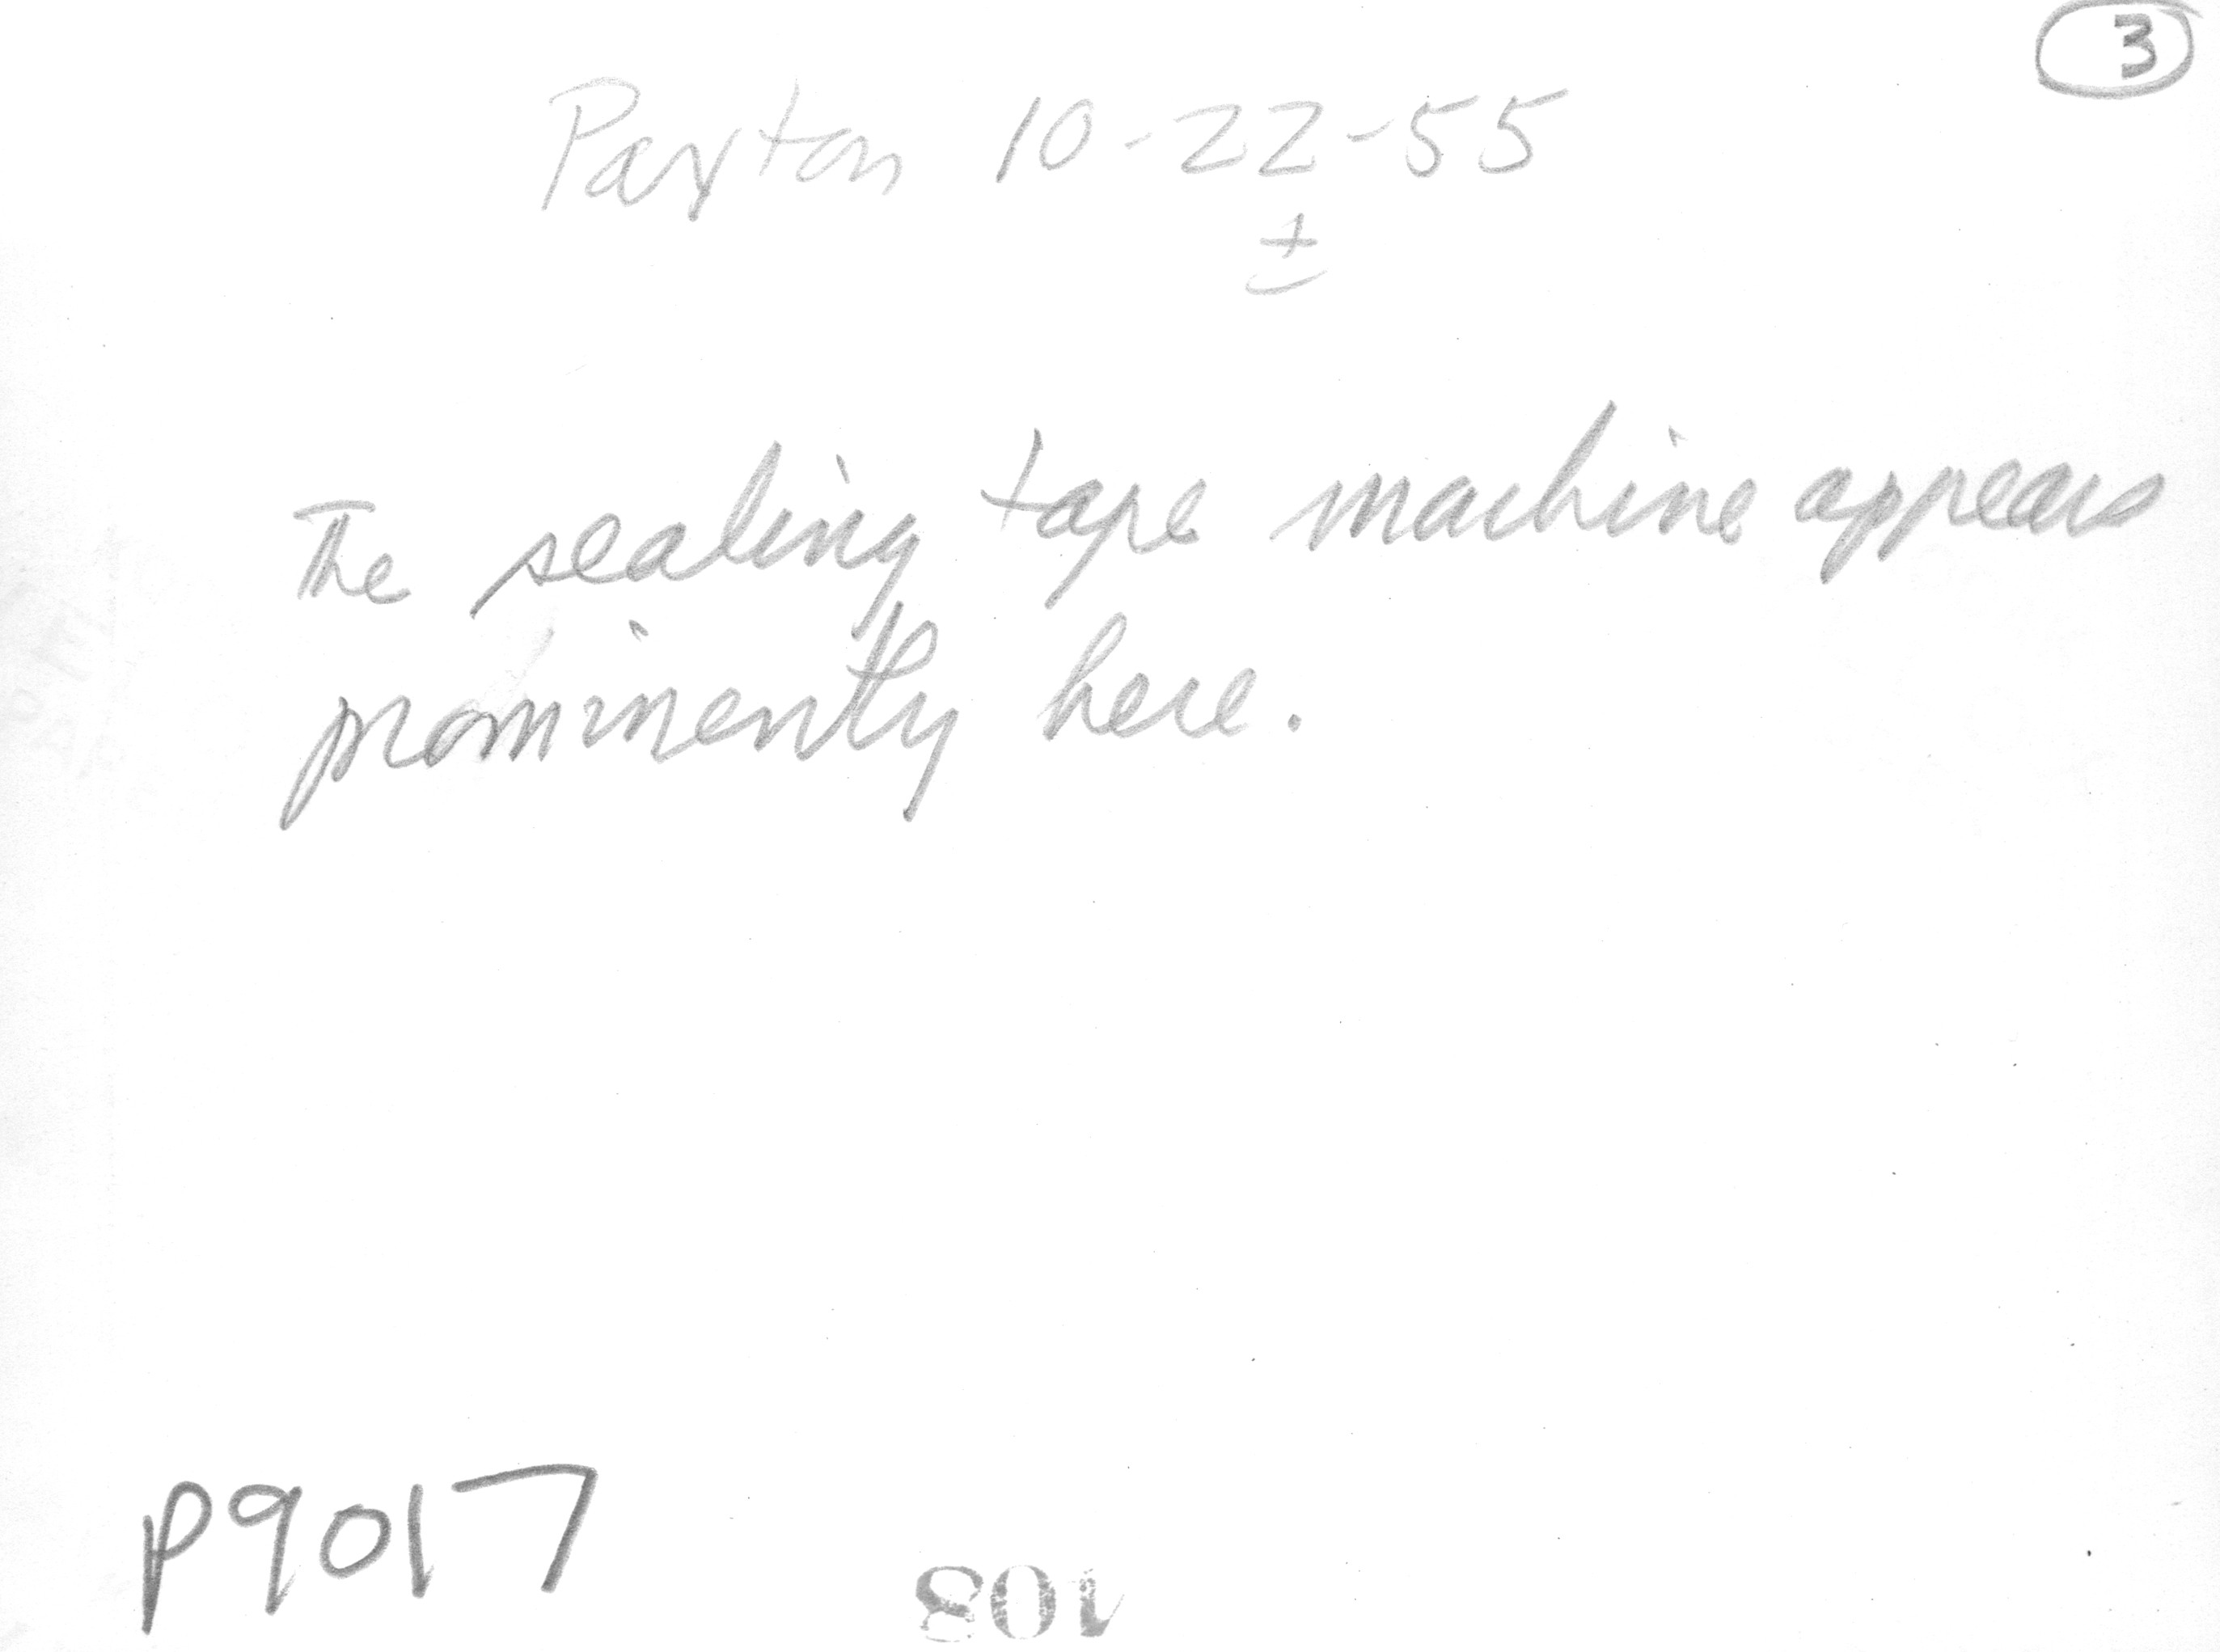 3
Paxton 10-22-55
±
The sealing tape machine appears
prominently here.
P9017
108